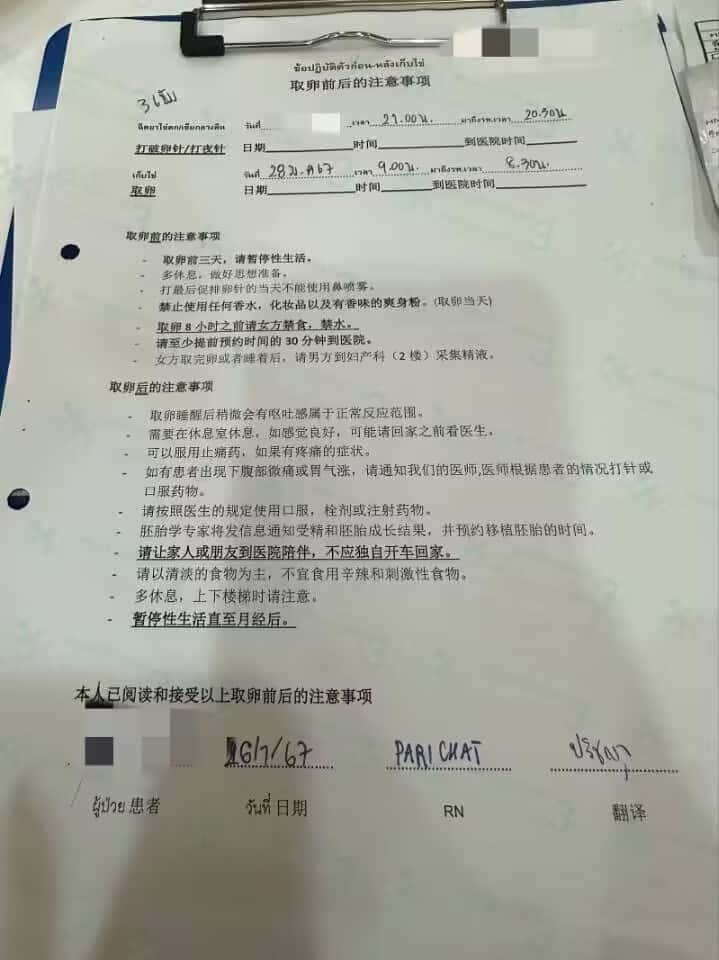 ข้อปฏิบัติตัวก่อน-หลังเก็บไข่
取卵前后的注意事项
3 เข็ม
ฉีดยาไข่ตก/เข็มกลางคืน วันที่ เวลา 21.00 น. มาถึงรพ.เวลา 20.30 น
打破卵针/打夜针 日期 时间 到医院时间
เก็บไข่ วันที่ 28 ม.ค 67 เวลา 9.00 น. มาถึงรพ.เวลา 8.30 น.
取卵 日期 时间 到医院时间
取卵前的注意事项
- 取卵前三天，请暂停性生活。
- 多休息，做好思想准备。
- 打最后促排卵针的当天不能使用鼻喷雾。
- 禁止使用任何香水，化妆品以及有香味的爽身粉。(取卵当天)
- 取卵 8 小时之前请女方禁食，禁水。
- 请至少提前预约时间的 30 分钟到医院。
- 女方取完卵或者睡着后，请男方到妇产科（2 楼）采集精液。
取卵后的注意事项
- 取卵睡醒后稍微会有呕吐感属于正常反应范围。
- 需要在休息室休息，如感觉良好，可能请回家之前看医生。
- 可以服用止痛药，如果有疼痛的症状。
- 如有患者出现下腹部微痛或胃气涨，请通知我们的医师,医师根据患者的情况打针或
口服药物。
- 请按照医生的规定使用口服，栓剂或注射药物。
- 胚胎学专家将发信息通知受精和胚胎成长结果，并预约移植胚胎的时间。
- 请让家人或朋友到医院陪伴，不应独自开车回家。
- 请以清淡的食物为主，不宜食用辛辣和刺激性食物。
- 多休息，上下楼梯时请注意。
- 暂停性生活直至月经后。
本人已阅读和接受以上取卵前后的注意事项
26/1/67 PARICHAT ปริชญา
ผู้ป่วย 患者 วันที่ 日期 RN 翻译